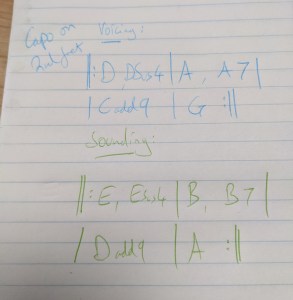 Capo on Voicing:
2nd fret
||: D, Dsus4 | A, A7 |
| Cadd9 | G :||
Sounding:
||: E, Esus4 | B, B7 |
| Dadd9 | A :||